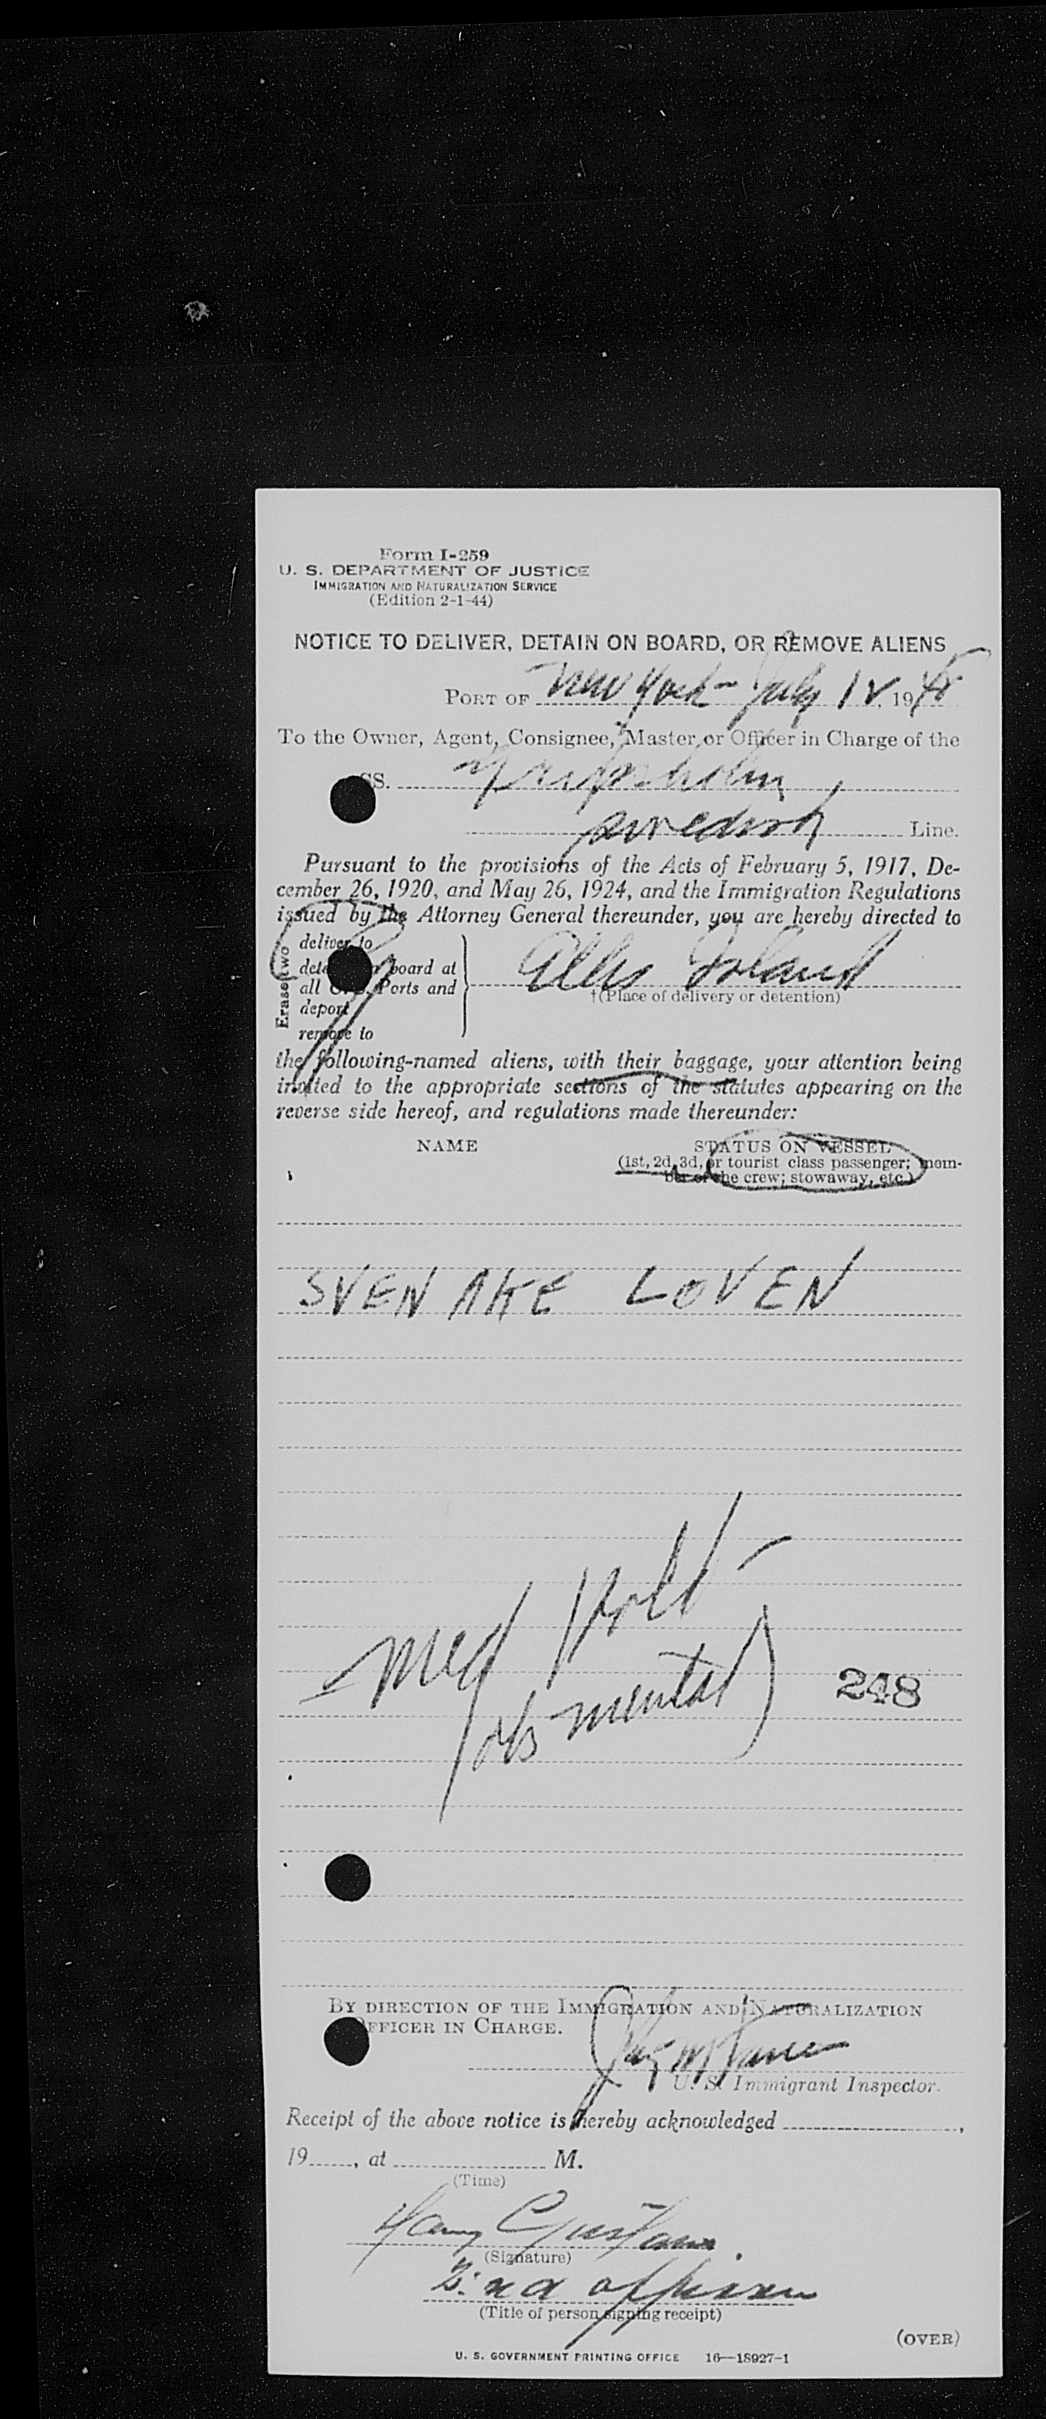 Form I-259
U. S. DEPARTMENT OF JUSTICE
IMMIGRATION AND NATURALIZATION SERVICE
(Edition 2-1-44)
NOTICE TO DELIVER, DETAIN ON BOARD, OR REMOVE ALIENS
PORT OF New York - July 12, 19
To the Owner, Agent, Consignee, Master, or Officer in Charge of the
SS. Gripsholm
Swedish Line.
Pursuant to the provisions of the Acts of February 5, 1917, De-
cember 26, 1920, and May 26, 1924, and the Immigration Regulations
issued by the Attorney General thereunder, you are hereby directed to
Erase two
deliver to
board at
all Ports and
deport
remove to
Ellis Island
†(Place of delivery or detention)
the following-named aliens, with their baggage, your attention being
invited to the appropriate sections of the statutes appearing on the
reverse side hereof, and regulations made thereunder:
NAME STATUS ON VESSEL
(1st, 2d, 3d, or tourist class passenger; mem-
ber of the crew; stowaway, etc.)
SVEN AKE LOVEN
Med Hold -
(obs mental)
248
BY DIRECTION OF THE IMMIGRATION AND NATURALIZATION
OFFICER IN CHARGE.
U. S. Immigrant Inspector.
Receipt of the above notice is hereby acknowledged ,
19 , at M.
(Time)
Harry
(Signature)
2:nd
(Title of person signing receipt)
(OVER)
U. S. GOVERNMENT PRINTING OFFICE 16—18927-1